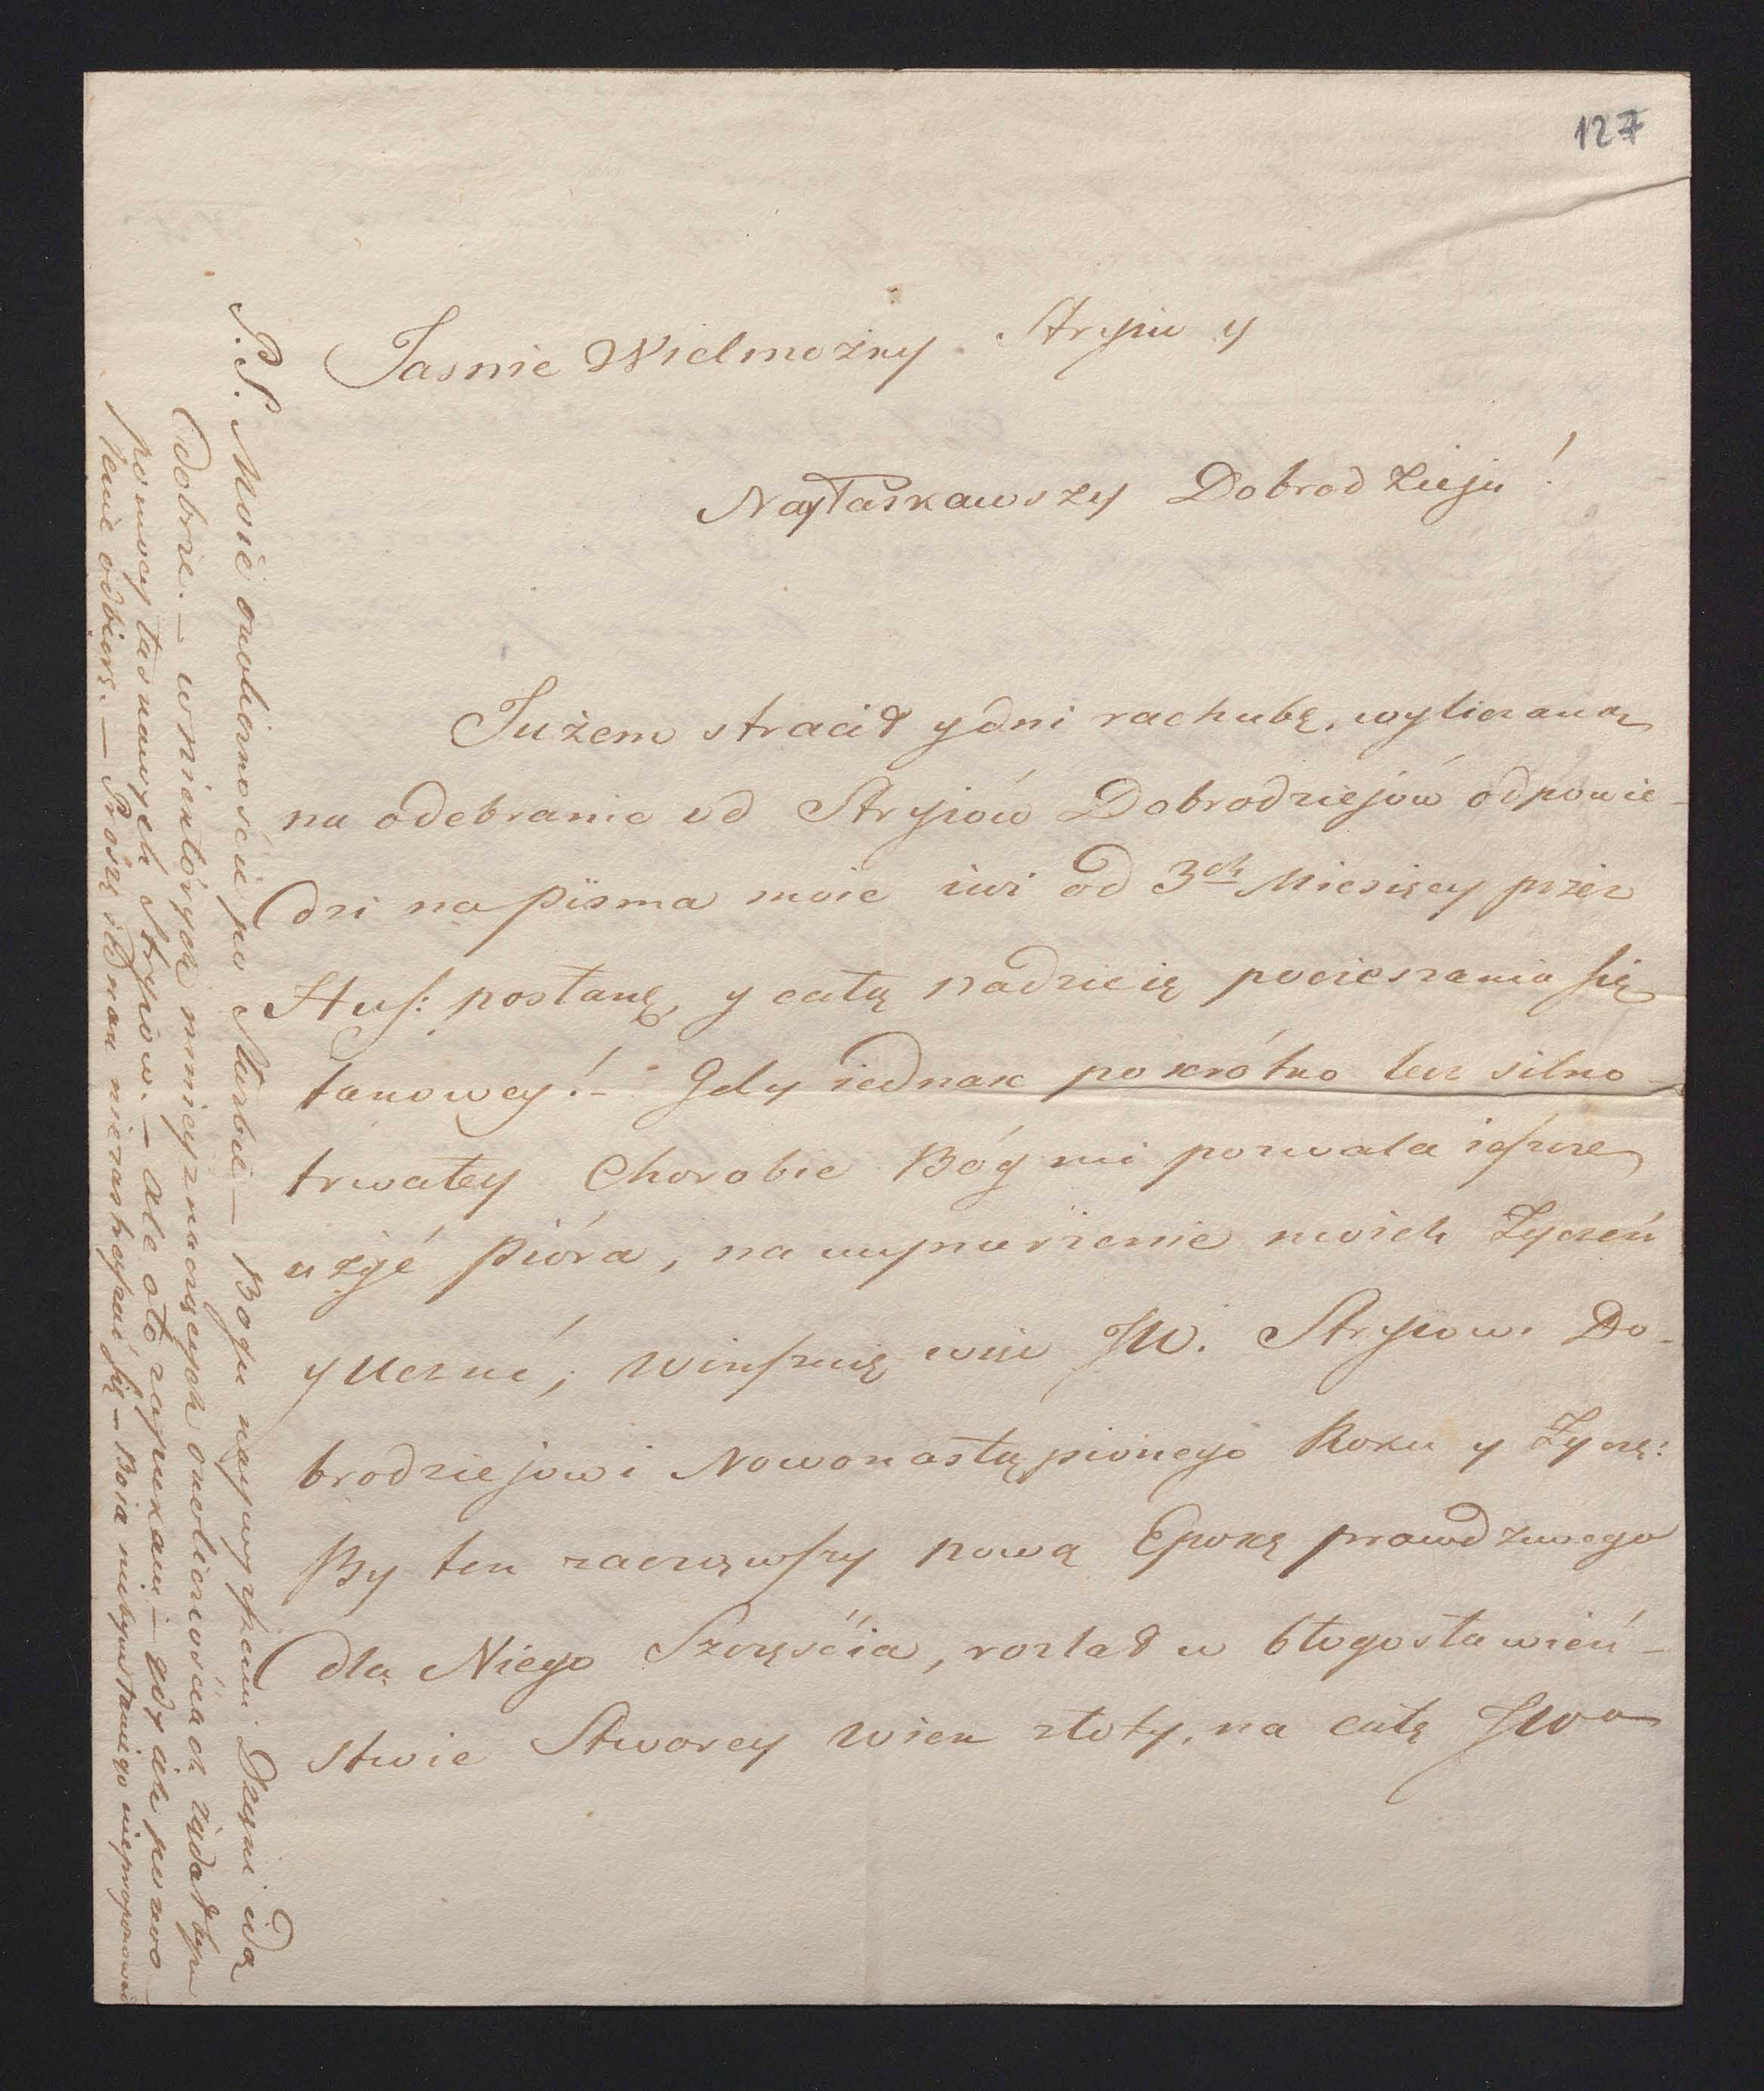 127
Jasnie Wielmożny Stryiu y
Nayłaskawszy Dobrodzieju!
Jużem stracił y dni rachubę, wyliczaną
na odebranie od Stryiów Dobrodziejów odpowie-
dzi na pisma moie iuż od 3ch Miesięcy przez
Stuf: posłane, y całą nadzieię pocieszania się
takowey!- Gdy iednak po krótko lecz silno-
trwałey Chorobie Bóg mi pozwala ieszcze
użyć pióra, na wynurzenie moich Życzeń
y Uczuć; winszuię więc JW. Stryiowi Do-
brodziejowi Nowonastąpionego Roku y Życzę:
By ten zacząwszy nową Epokę prawdziwego
dla Niego Szczęścia, rozlał w błogosławień-
stwie Stworcy wiek złoty, na całą JWo
P.S. Moie okoliczności po Służbie — Bogu naywyższemu Dzięki idą
Dobrze. — w niektórych mniey znaczących okolicznościach żądałbym
pomocy łaskawych Stryiów. — ale oto zapukam — gdy ich pozwo-
lenie odbiorę. — Proszę iednak się — Boia